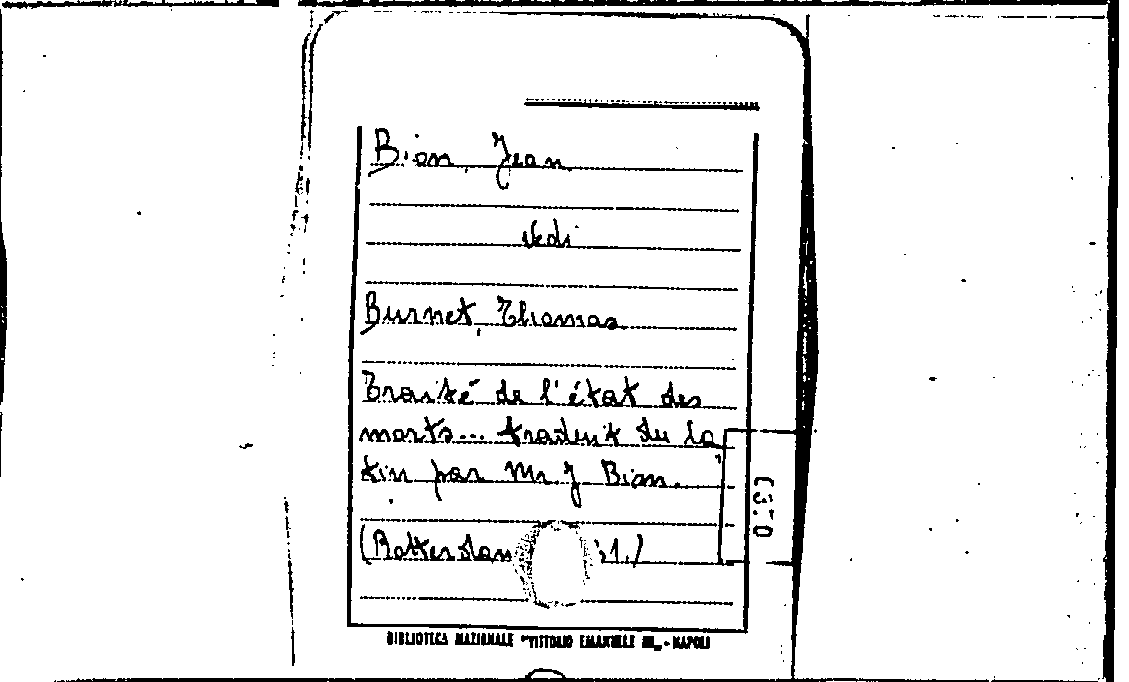 Bion, Jean
vedi
Burnet, Thomas
Traité de l'état des
morts... traduit du la
tin par Mr J Bion.
(Rotterdam 31.)
BIBLIOTECA NAZIONALE "VITTORIO EMANUELE III" - NAPOLI